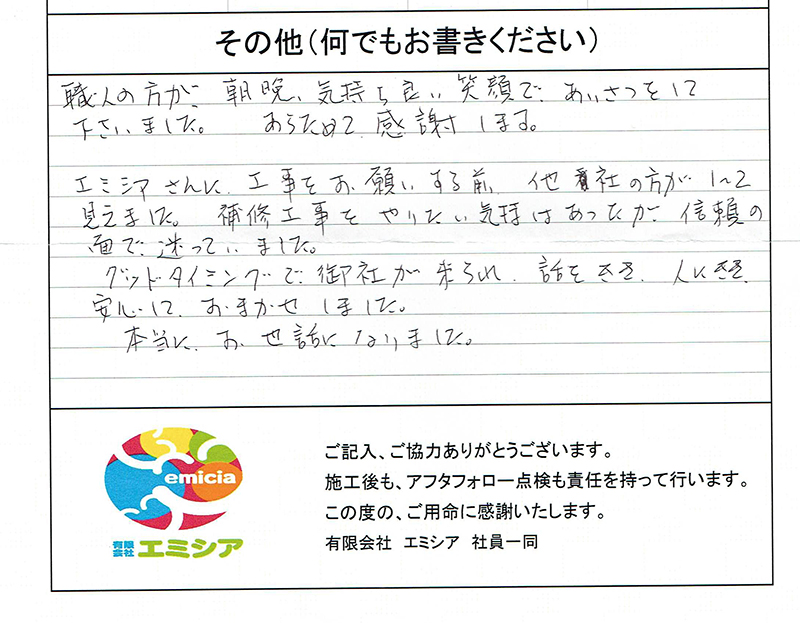 その他（何でもお書きください）
職人の方が、朝晩、気持ち良い笑顔で、あいさつをして
下さいました。 あらためて、感謝します。
エミシアさんに、工事をお願いする前、他社の方が1〜2
見えました。 補修工事をやりたい気持はあったが、信頼の
面で、迷っていました。
グッドタイミングで、御社が来られ、話をきき、人にきき、
安心して、おまかせしました。
本当に、お世話になりました。
emicia
有限会社 エミシア
ご記入、ご協力ありがとうございます。
施工後も、アフタフォロー点検も責任を持って行います。
この度の、ご用命に感謝いたします。
有限会社 エミシア 社員一同